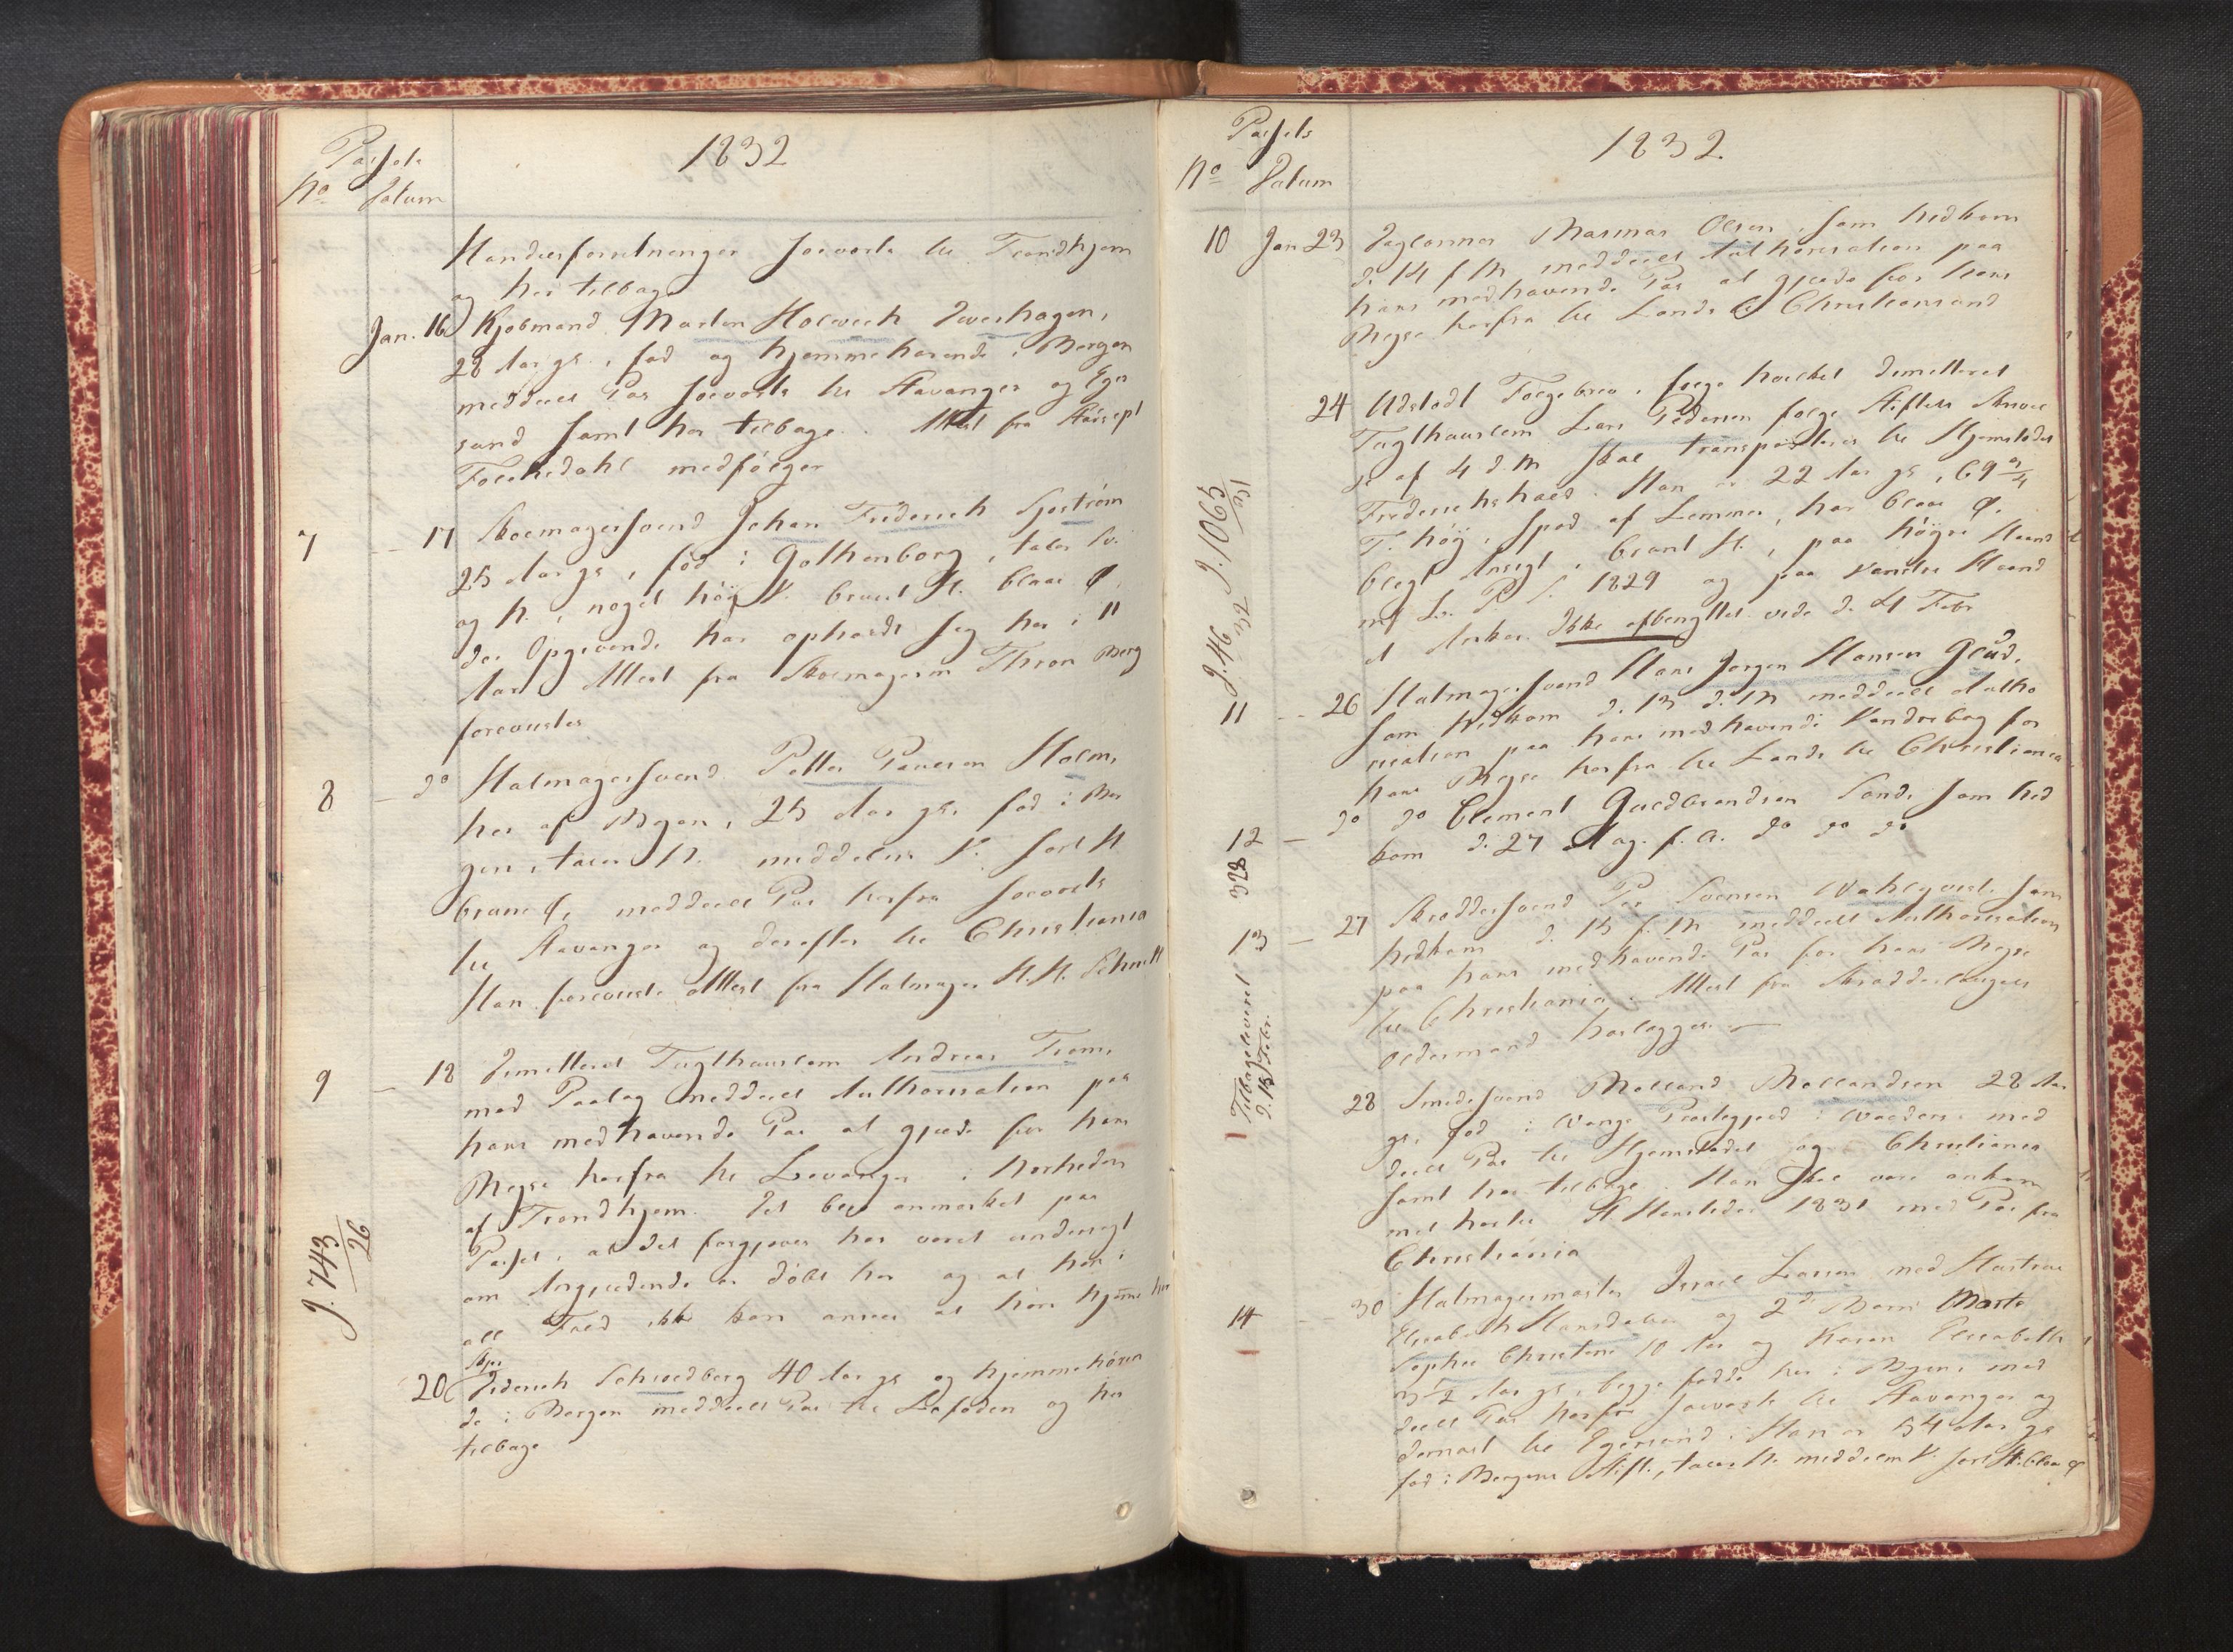 Passets
No Datum
1832
Handelsforretninger søeværts til Trondhjem
og her tilbage
Jan. 16 Kjøbmand Morten Holvech Dverhagen,
28 Aar gl., fød og hjemmehørende i Bergen
meddeelt Pas søeværts til Stavanger og Eger
sund samt her tilbage. Attest fra
medfølger
7 17 Skoemagersvend Johan Friderich Sjøstrøm
25 Aar gl., fød i Gothenborg, taler Sv.
og N., noget høy V. bruunt H. blaae Ø.
der Opgivende har opholdt sig her i 11
Aar. Attest fra Skoemagerm Thron Berg
foreviistes
8 do Hatmagersvend Petter Povelsen Holm,
her af Byen, 25 Aar gl. fød i Ber
gen, taler N. middels V. sort H
brune Ø, meddeelt Pas herfra søeværts
til Stavanger og derefter til Christiania
Han foreviiste Attest fra Hatmager H. H. Schmidt
9 18 Dimitteret Tugthuuslem Andreas Troms
med Paalæg meddeelt Authorisation paa
hans medhavende Pas at gjælde for hans
Reyse herfra til Levanger i Nærheden
af Trondhjem. Det blev anmærket paa
Passet, at det forgjæves har været undersøgt
om Angjældende er døbt her og at han i
alt Fald ikke kan ansees at høre hjemme her
J. 743/26
Skpr
20 Diderich Schwedberg 40 Aar gl. og hjemmehøren
de i Bergen meddeelt Pas til Lofoden og her
tilbage
Passets
No Datum
1832.
10 Jan 23 Daglønner Rasmus Olsen, som hidkom
d. 14 f. M. meddeelt Authorisation paa
hans medhavende Pas at gjælde for hans
Reyse herfra til Lands til Christiansand
24 Udstædt Følgebrev, ifølge hvilket dimitteret
Tugthuuslem Lars Pedersen følge Stiftets Skrivel
se af 4 d. M. skal transporteres til Hjemstedet
Friderichshald. Han er 22 Aar gl., 69 3/4
T. høy, spæd af Lemmer, har blaae Ø.
blegt Ansigt, bruunt H., paa høyre Haand
1829 og paa venstre Haand
et Anker. Ikke afbenyttet vide d. 4 Febr
J. 46/32 J. 1065/31
11 26 Hatmagersvend Hans Jørgen Hansen Glud,
som hidkom d. 13 d. M. meddeelt Autho
risation paa hans medhavende Vandrebog for
hans Reyse herfra til Lands til Christiania
12 do do Clement Guldbrandsen Lande som hid
kom d. 27 Aug. f. A. do do do
328
13 27 Skræddersvend Per Svensen Wahlqvist, som
hidkom d. 15 f. M. meddeelt Authorisation
paa hans medhavende Pas for hans Reyse
til Christiania. Attest fra Skrædderlaugets
Oldermand herlægges.
Tilbageleveret
d. 15 Febr.
28 Smedesvend Rolland Rollandsen 28 Aar
gl., fød i Vangs Præstegjæld i Valders med
deelt Pas til Hjemstedet og Christiania
samt her tilbage. Han skal være ankom
met hertil St Hanstider 1831 med Pas fra
Christiania
14 30 Hatmagermester Israel Larsen med Hustrue
Elisabeth Hansdatter og 2de Børn Marte
Sophie Christine 10 Aar og Karen Elisabeth
3 1/2 Aar gl., begge fødde her i Byen, med
deelt Pas herfra søeværts til Stavanger og
dernæst til Egersund. Han er 54 Aar gl.
fød i Bergens Stift, taler N. middelm V. sort H. blaae Ø